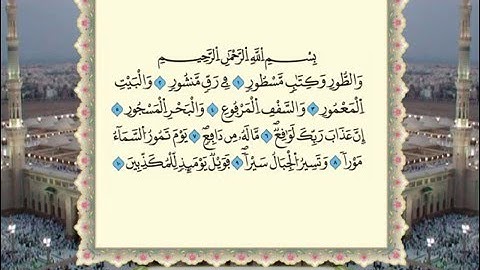 بِسْمِ اللَّهِ الرَّحْمَٰنِ الرَّحِيمِ
وَالطُّورِ وَكِتَابٍ مَّسْطُورٍ ۝١ فِي رَقٍّ مَّنشُورٍ ۝٢ وَالْبَيْتِ
الْمَعْمُورِ ۝٣ وَالسَّقْفِ الْمَرْفُوعِ ۝٤ وَالْبَحْرِ الْمَسْجُورِ ۝٥
إِنَّ عَذَابَ رَبِّكَ لَوَاقِعٌ ۝٦ مَّا لَهُ مِن دَافِعٍ ۝٧ يَوْمَ تَمُورُ السَّمَاءُ
مَوْرًا ۝٨ وَتَسِيرُ الْجِبَالُ سَيْرًا ۝٩ فَوَيْلٌ يَوْمَئِذٍ لِّلْمُكَذِّبِينَ ۝١٠